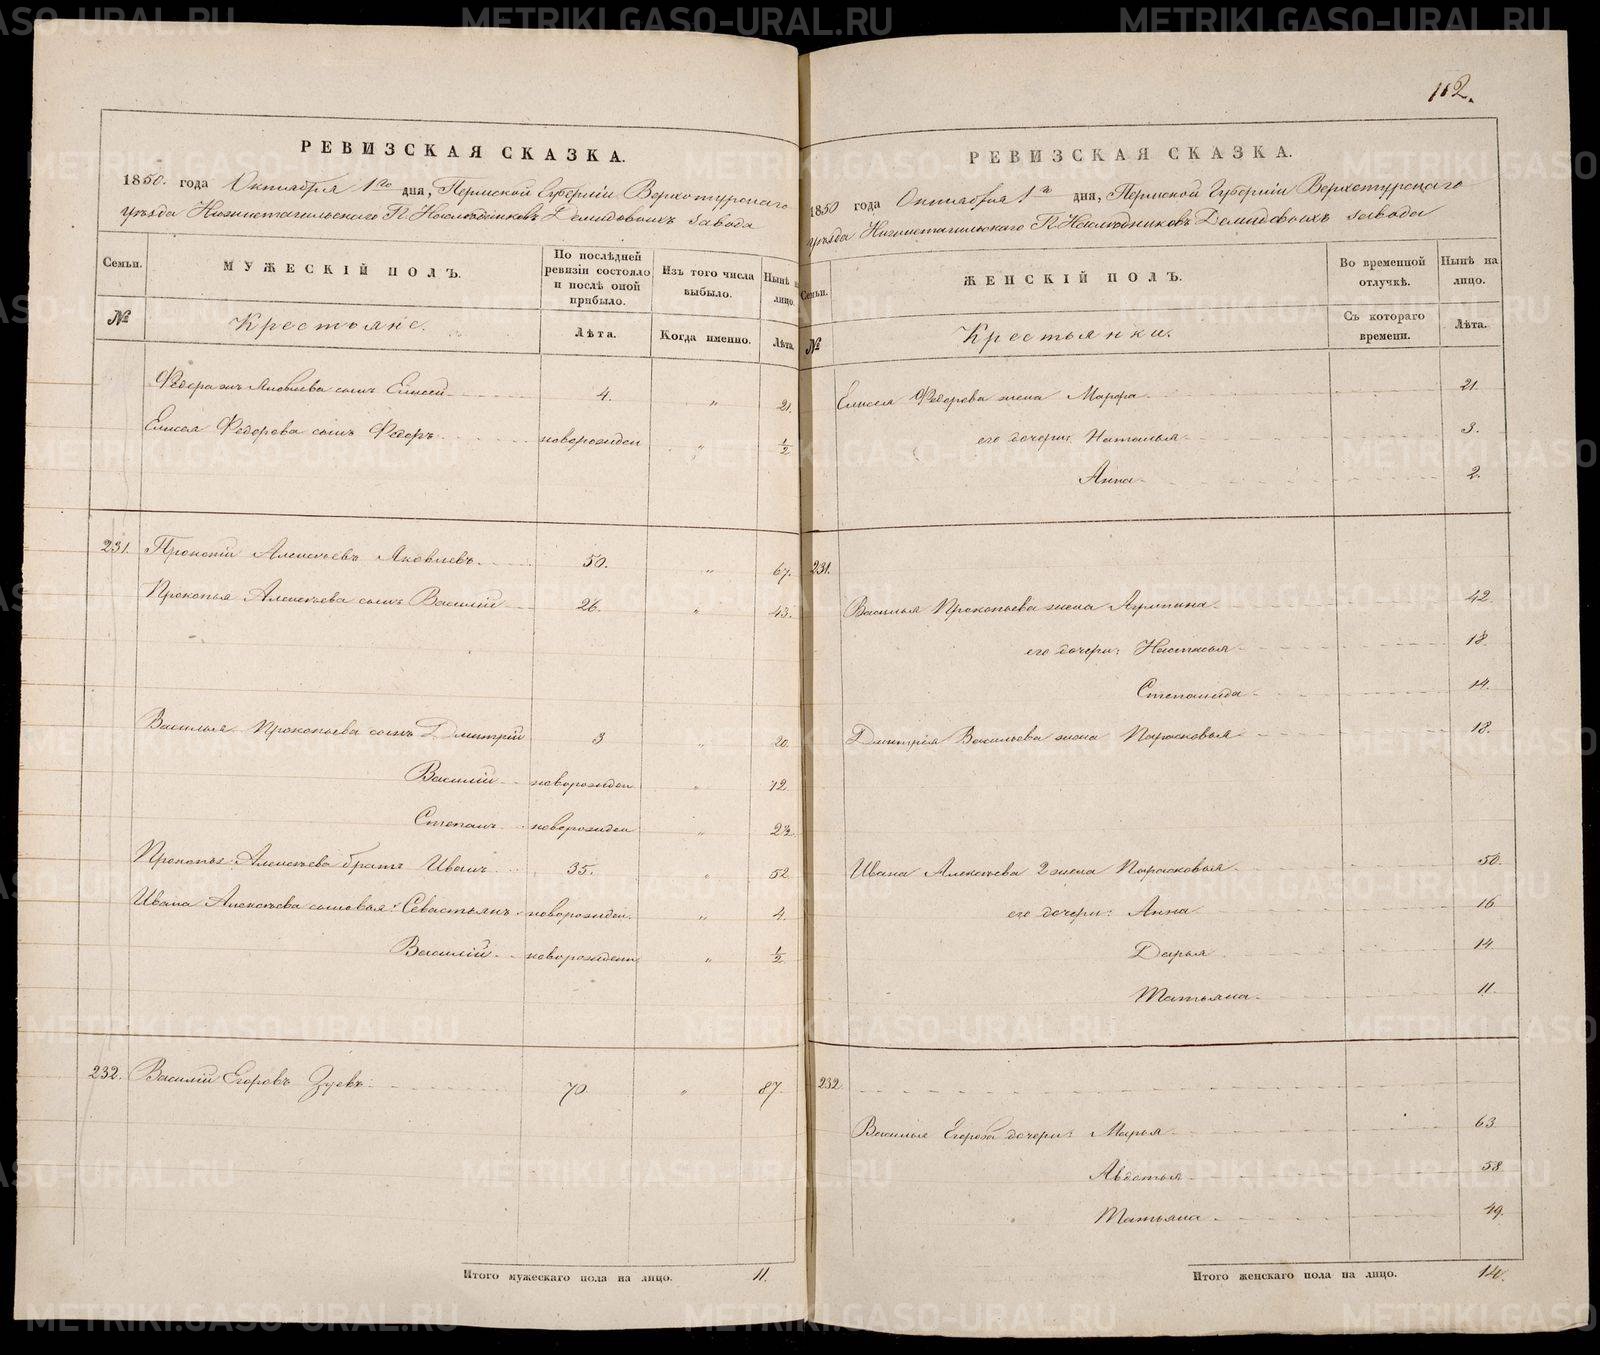 112.
РЕВИЗСКАЯ СКАЗКА.
1850. года Октября 1го дня, Пермской Губерніи Верхотурскаго
уѣзда Нижнетагильскаго Г. Наслѣдниковъ Демидовыхъ завода
Семьи.
МУЖЕСКІЙ ПОЛЪ.
По послѣдней ревизіи состояло и послѣ оной прибыло.
Изъ того числа выбыло.
Нынѣ на лицо.
№
Крестьяне.
Лѣта.
Когда именно.
Лѣта.
Ѳедора Яковлева сынъ Елисей 4. " 21.
Елисея Ѳедорова сынъ Ѳедоръ новорожден " ½
231. Прокопій Алексѣевъ Яковлевъ. 50. " 67.
Прокопья Алексѣева сынъ Василій 26. " 43.
Василья Прокопьева сынъ Дмитрій 3 " 20.
Василій новорожден " 12
Степанъ новорожден " 2½
Прокопья Алексѣева братъ Иванъ 35. " 52
Ивана Алексѣева сыновья: Севастьянъ новорожден. " 4.
Василій новорожденъ " ½
232. Василій Егоровъ Зуевъ 70. " 87.
Итого мужескаго пола на лицо. 11.
РЕВИЗСКАЯ СКАЗКА.
1850 года Октября 1го дня, Пермской Губерніи Верхотурскаго
уѣзда Нижнетагильскаго Г. Наслѣдниковъ Демидовыхъ завода
Семьи.
ЖЕНСКІЙ ПОЛЪ.
Во временной отлучкѣ.
Нынѣ на лицо.
№
Крестьянки.
Съ котораго времени.
Лѣта.
Елисея Ѳедорова жена Марфа 21.
его дочери: Наталья 3.
Анна 2.
231.
Василья Прокопьева жена Агрипина 42
его дочери: Настасья 18.
Степанида 14.
Дмитрія Васильева жена Парасковья 18.
Ивана Алексѣева 2 жена Парасковья 50.
его дочери: Анна 16
Дарья 14.
Татьяна 11.
232
Василья Егорова дочери: Марья 63
Авдотья 58
Татьяна 49.
Итого женскаго пола на лицо. 14.
METRIKI.GASO-URAL.RU